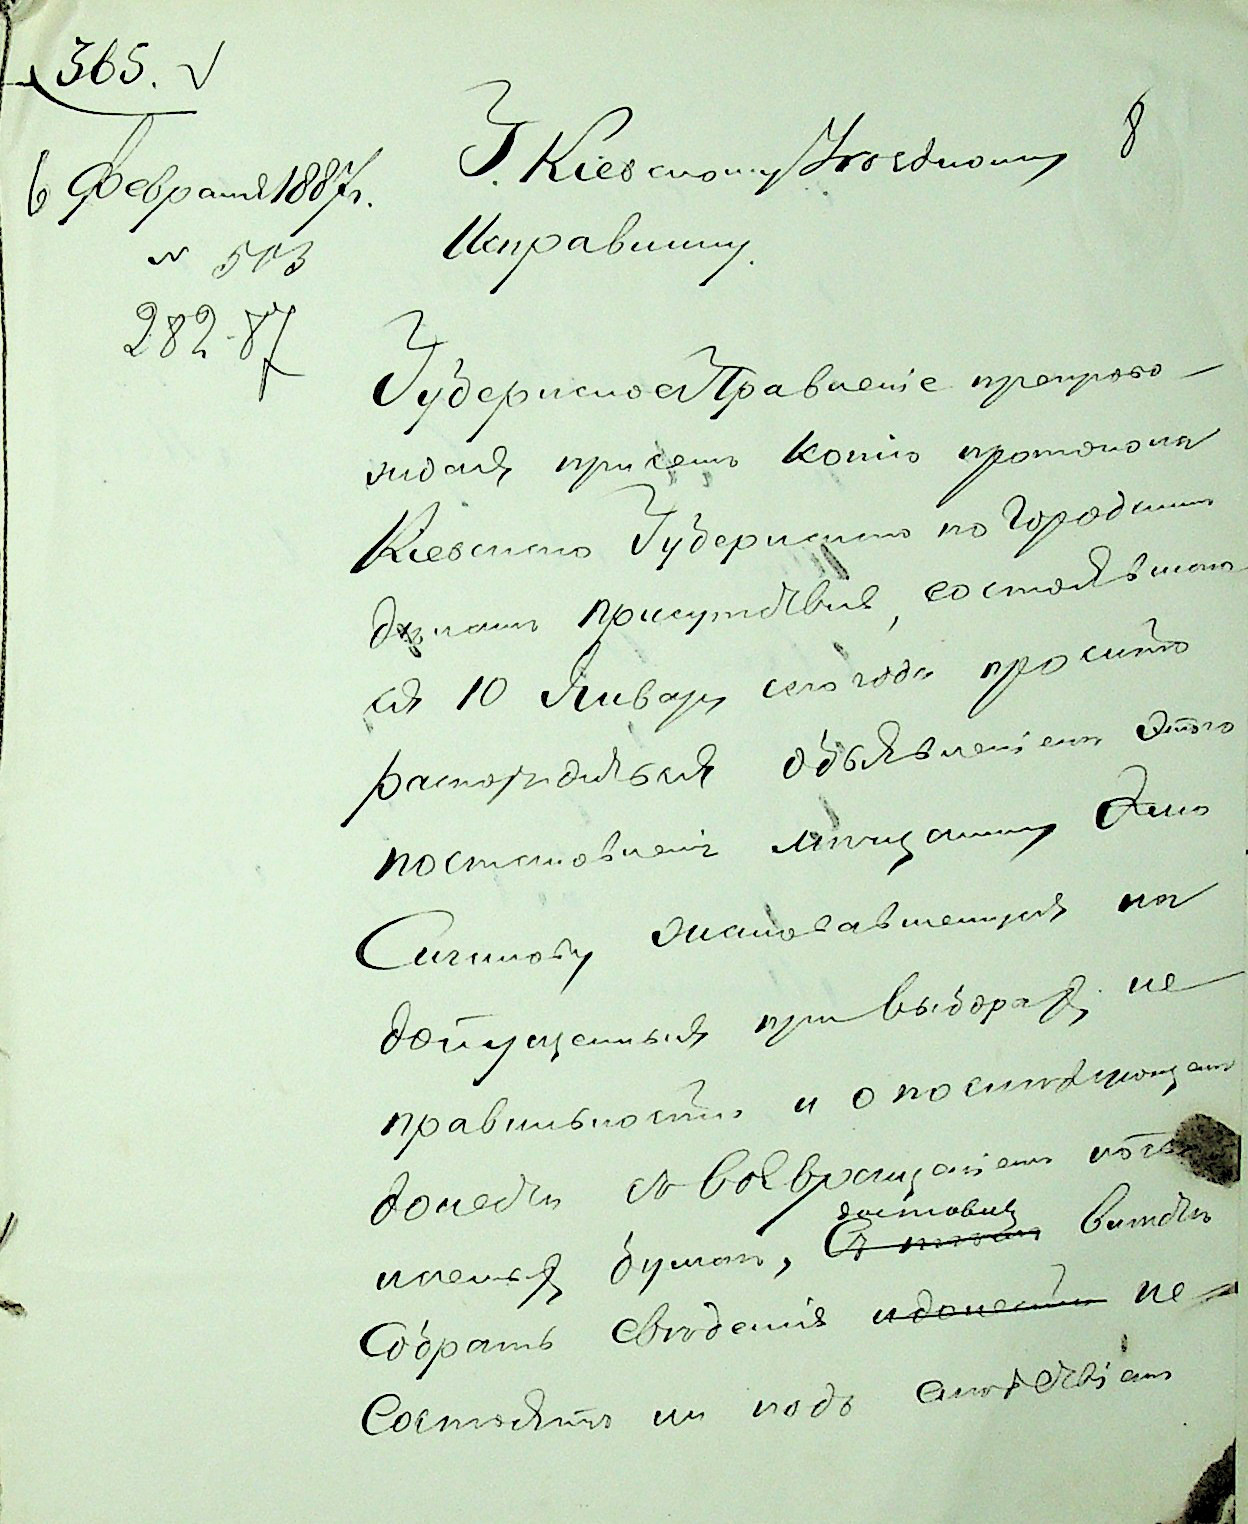 365. √
8
6 Февраля 1887 г.
№ 513
282-87
Г. Кіевскому Уѣздному
Исправнику.
Губернское Правленіе препрово-
ждая при семъ копію протокола
Кіевскаго Губернскаго по Городскимъ
дѣламъ присутствія, состоявшаго
ся 10 Января сего года проситъ
распорядиться объявленіемъ этого
постановленія мѣщанину
Сигалову жаловавшемуся на
допущенныя при выборахъ не
правильности и о послѣдующемъ
донести съ возвращеніемъ
бумагъ, доставить вмѣстѣ
Собрать свѣдѣнія и донести не
Состоятъ ли подъ слѣдствіемъ